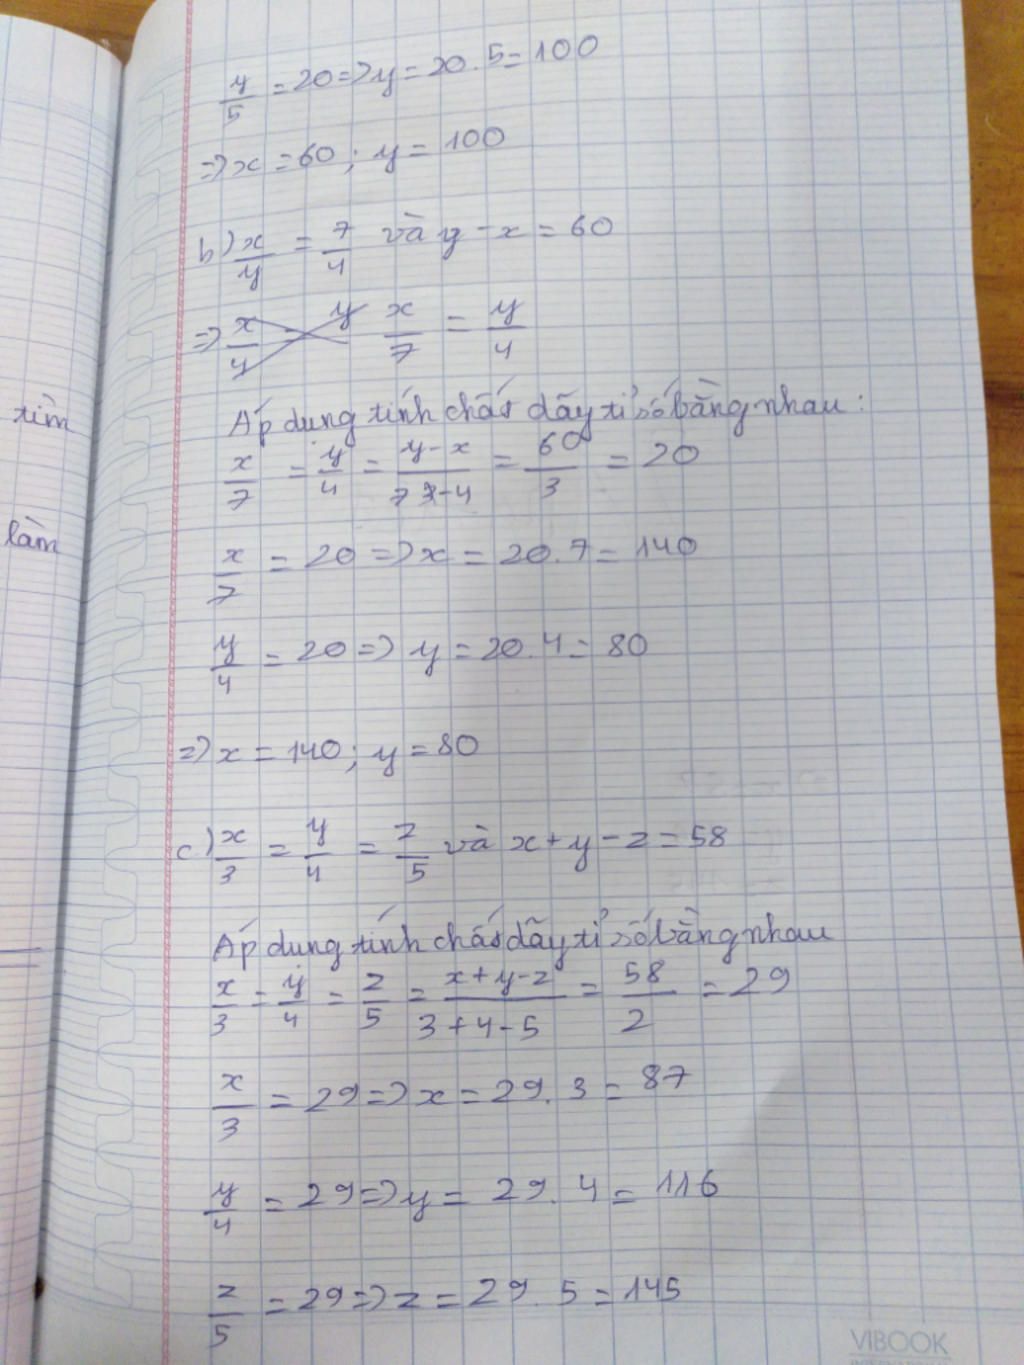 y/5 = 20 => y = 20.5 = 100
=> x = 60; y = 100
b) x/y = 7/4 và y - x = 60
=> x/7 = y/4
Áp dung tính chát dãy tỉ số bằng nhau:
x/7 = y/4 = (y - x)/(7-4) = 60/3 = 20
tìm
x/7 = 20 => x = 20.7 = 140
làm
y/4 = 20 => y = 20.4 = 80
=> x = 140; y = 80
c) x/3 = y/4 = z/5 và x + y - z = 58
Áp dung tính chát dãy tỉ số bằng nhau
x/3 = y/4 = z/5 = (x + y - z)/(3 + 4 - 5) = 58/2 = 29
x/3 = 29 => x = 29.3 = 87
y/4 = 29 => y = 29.4 = 116
z/5 = 29 => z = 29.5 = 145
VIBOOK